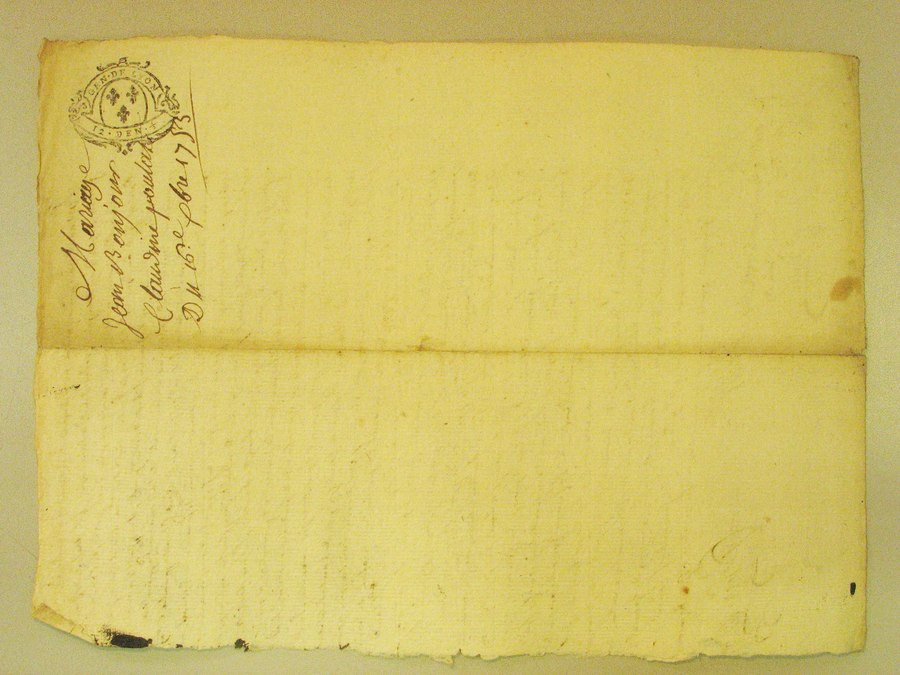 GEN · DE LYON
12 · DEN · 4
Mariage
Jean Bonjour
Claudine
Du 16re xbre 1753